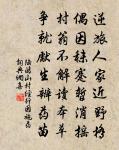 逆旅人家近野桥
偶因秣蹇暂消摇
村翁不解读本草
争就先生辨药苗
陆游山村经行因施药
词兴炯真